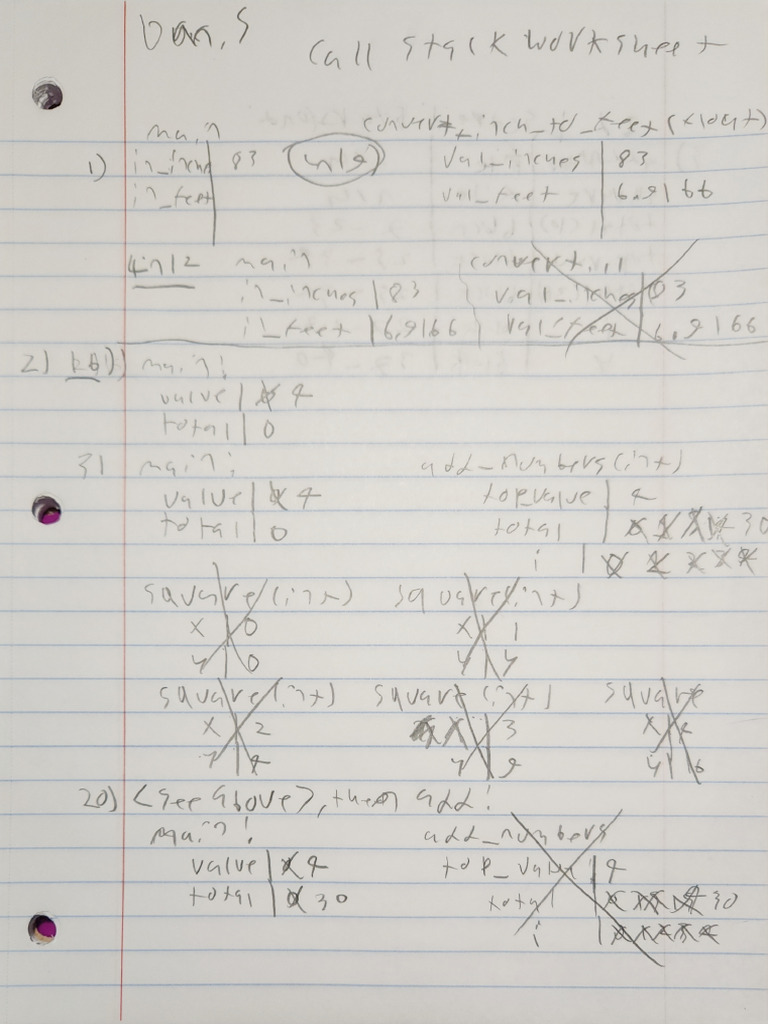 Dan, S
Call stack worksheet
main convert_inch_to_feet(float)
1) in_inches 83 val_inches 83
in_feet val_feet 6.9166
main convert...
in_inches 83 val_inches 83
in_feet 6.9166 val_feet 6.9166
2) main:
value 4
total 0
31 main: add_numbers(int)
value 4 top_value 4
total 0 total 30
i
square(int) square(int)
x 0 x 1
y 0 y
square(int) square(int) square
x 2 x 3 x 4
y 4 y 9 y 16
20) <see above>, then add:
main: add_numbers
value 4 top_value 4
total 0 30 total 30
i